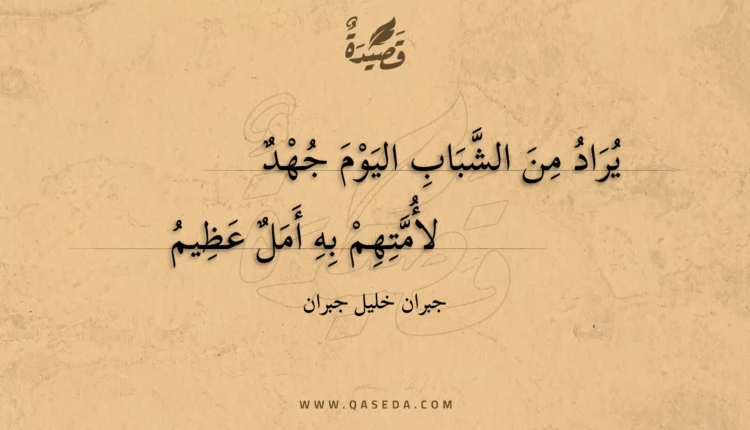 قَصِيْدَةٌ
يُرَادُ مِنَ الشَّبَابِ اليَوْمَ جُهْدٌ
لأُمَّتِهِمْ بِهِ أَمَلٌ عَظِيمُ
جبران خليل جبران
WWW.QASEDA.COM